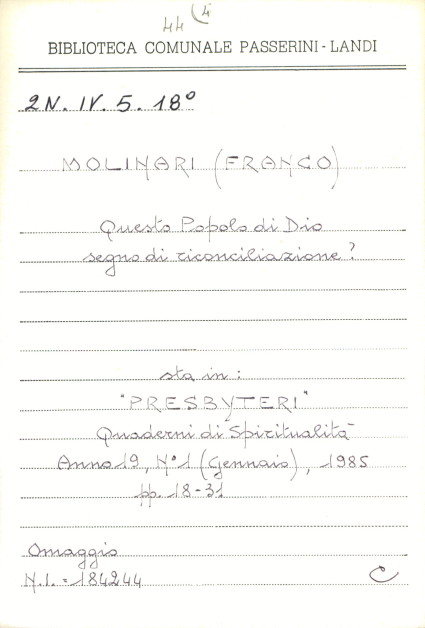 44 (4
BIBLIOTECA COMUNALE PASSERINI - LANDI
2N. IV. 5. 18°
MOLINARI (FRANCO)
Questo Popolo di Dio
segno di riconciliazione?
sta in:
"PRESBYTERI"
Quaderni di Spiritualità
Anno 19, N° 1 (Gennaio), 1985
pp. 18-31
Omaggio
N.I. = 184244
C